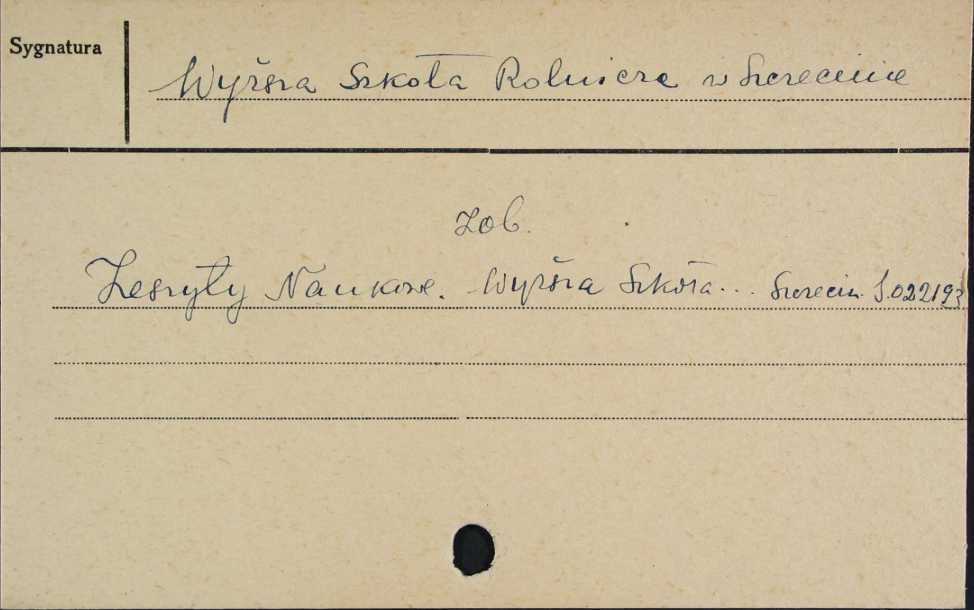 Sygnatura
Wyższa Szkoła Rolnicza w Szczecinie
zob.
Zeszyty Naukowe. Wyższa Szkoła... Szczecin. S.022193